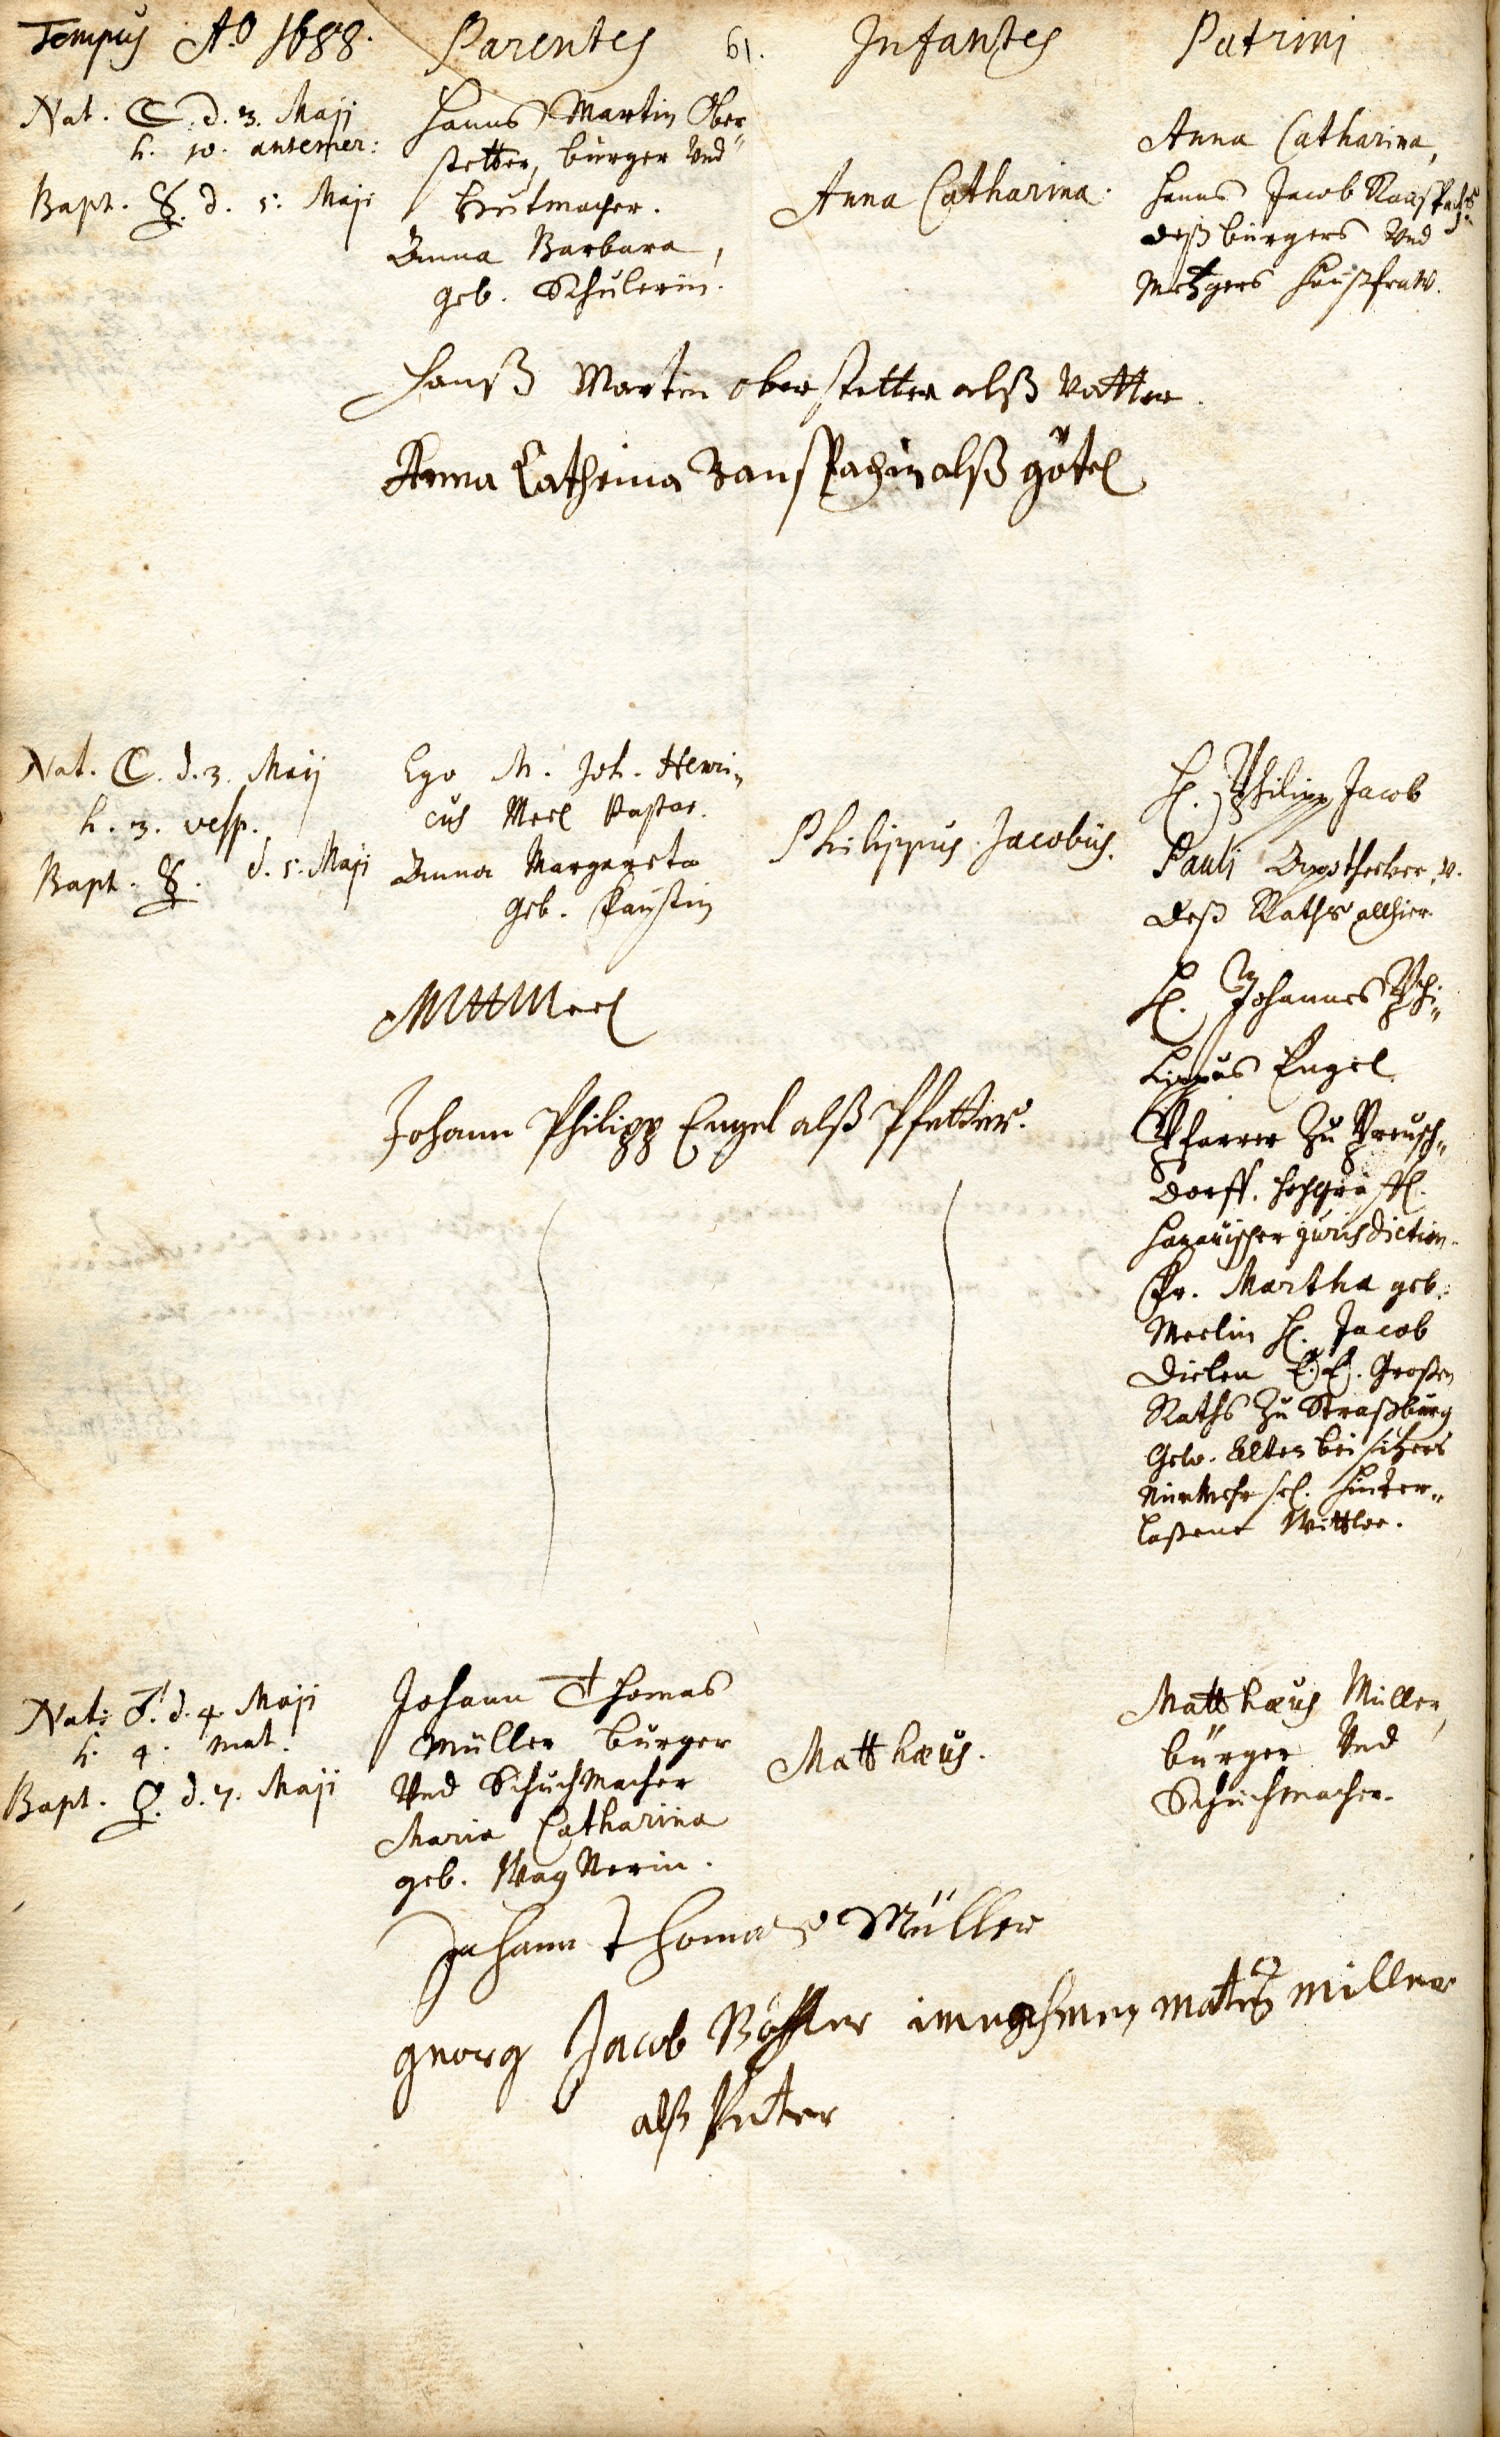 Tempus Aō 1688. Parentes 61. Infantes Patrini
Nat. ☾. d. 3. Maji
h. 10. antemer:
Bapt. ☿. d. 5. Maji
Hanns Martin Ober-
stetter, burger Und
Hutmacher.
Anna Barbara,
geb. Schulerin.
Anna Catharina.
Anna Catharina,
Hanns Jacob Ranspachs
deß burgers Und
Metzgers Haußfraw.
Hanß Martin oberstetter alß Vatter.
Anna Cathrina Ranspachin alß götel
Nat. ☾. d. 3. Maij
h. 3. vesp.
Bapt. ☿. d. 5. Maji
Ego M. Joh. Henri-
cus Merl Pastor.
Anna Margareta
geb. Faustin
Philippus Jacobus.
H. Philipp Jacob
Pauli Appothecker, v.
deß Raths allhier.
H. Johannes Phi-
lippus Engel
Pfarrer Zu Preusch-
dorff. Hochgräffl.
Hanauischer jurisdiction.
Fr. Martha geb.
Merlin H. Jacob
Dielen E. E. Großen
Raths Zu Straßburg
Gew. Alten beisitzers
Nunmehr sel. hinter-
laßene Wittwe.
Merl
Johann Philipp Engel alß Pfetter.
Nat: ♂. d. 4. Maji
h. 4. mat.
Bapt. ♀. d. 7. Maji
Johann Thomas
Müller burger
Und Schuchmacher
Maria Catharina
geb. Wagnerin.
Matthæus.
Matthæus Müller,
bürger Und
Schuchmacher.
Johann Thomas Müller
georg Jacob im nahmen miller
alß Petter